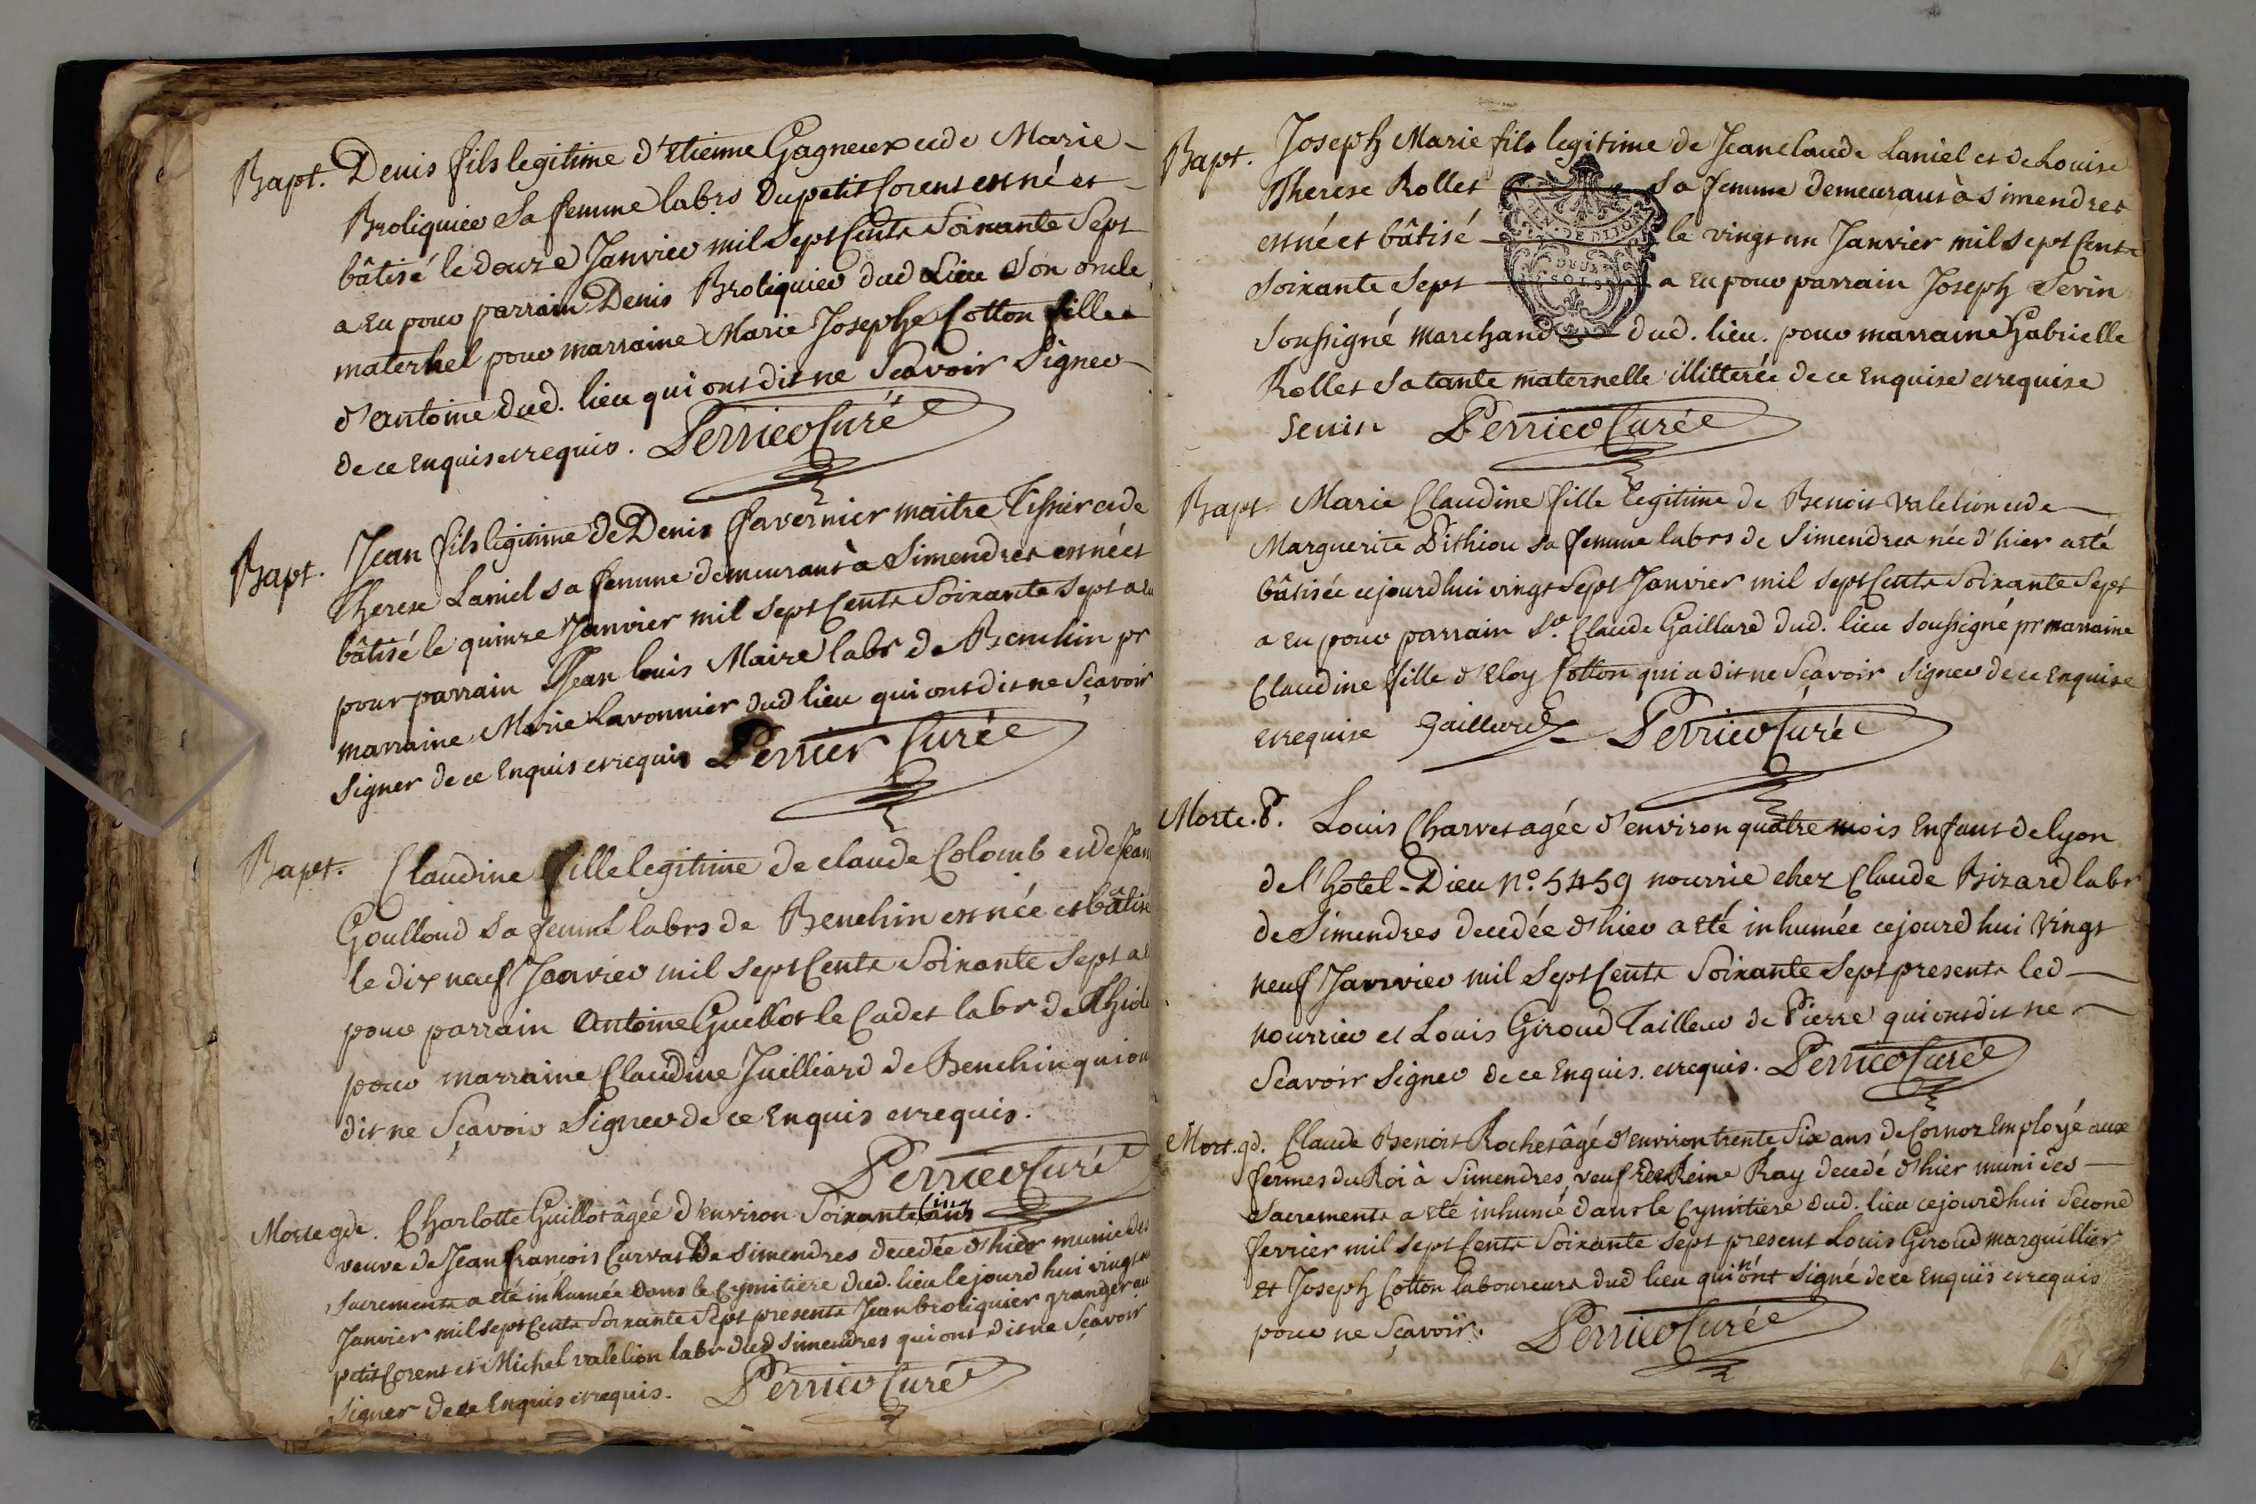 Bapt. Denis fils legitime d'Etienne Gagneux et de Marie
Broliquier Sa femme labrs Du petit Corent est né et
bâtisé le douze Janvier mil Sept Cents Soixante Sept
a Eu pour parrain Denis Broliquier dud Lieu Son oncle
maternel pour marraine Marie Josephe Cotton fille
d'Antoine dud. lieu qui ont dit ne Scavoir Signer
de ce Enquis et requis. Perrier Curé
Bapt. Jean fils legitime de Denis favernier maitre Tissier et de
Therese Laniel sa femme demeurant à Simendres est né et
bâtisé le quinze Janvier mil Sept Cents Soixante Sept a Eu
pour parrain Jean louis Maire labr de Benchin pr
marraine Marie Lavonnier dud lieu qui ont dit ne Sçavoir
Signer de ce Enquis et requis Perrier Curé
Bapt. Claudine fille legitime de claude Colomb et de Jean
Goulloud Sa femme labrs de Benchin est née et bâtisé
le dix neuf Janvier mil Sept Cents Soixante Sept a
pour parrain Antoine Guillot le Cadet labr de
pour marraine Claudine Juilliard de Benchin qui on
dit ne Sçavoir Signer de ce Enquis et requis.
Perrier Curé
Morte gde. Charlotte Guillot âgée d'environ Soixante Cinq ans
veuve de Jean francois Curvat De Simendres decedée d'hier munie des
Sacrements a été inhumée dans le Cymitiere dud. lieu cejourd'hui vingt
Janvier mil Sept Cents Soixante Sept presents Jean broliquier granger au
petit Corent et Michel valelion labr dud Simendres qui ont dit ne Sçavoir
Signer de ce Enquis et requis. Perrier Curé
Bapt. Joseph Marie fils legitime de Jean claude Laniel et de Louise
Therese Rollet Sa femme demeurant à Simendres
est né et bâtisé le vingt un Janvier mil Sept Cents
Soixante Sept a Eu pour parrain Joseph Sevin
Soussigné marchand dud. lieu. pour marraine Gabrielle
Rollet Sa tante maternelle illitterée de ce Enquise et requise
GEN. DE DIJON
DEUX
SOLS
Sevin Perrier Curé
Bapt. Marie Claudine fille legitime de Benoit valelion et de
Marguerite Pithiou sa femme labrs de Simendres née d'hier a eté
bâtisée cejourdhui vingt Sept Janvier mil Sept Cents Soixante Sept
a Eu pour parrain Sr. Claude Gaillard dud. lieu Soussigné pr marraine
Claudine fille d'Eloy Cotton qui a dit ne Scavoir Signer de ce Enquise
et requise Gaillard Perrier Curé
Morte. P. Louis Charvet agée d'environ quatre mois Enfant de lyon
de l'hotel-Dieu No. 5459 nourrie chez Claude Bizard labr
de Simendres decedée d'hier a eté inhumée cejourdhui Vingt
neuf Janvier mil Sept Cents Soixante Sept presents led
nourrier et Louis Giroud Tailleur de Pierre qui ont dit ne
Scavoir Signer de ce Enquis. et requis. Perrier Curé
Mort. gd. Claude Benoit Rochet âgé d'environ trente Six ans de Cornoz Employé aux
fermes du Roi à Simendres, veuf de Reine Ray decedé d'hier muni des
Sacrements a eté inhumé dans le Cymitiere dud. lieu cejourd'hui Second
fevrier mil Sept Cents Soixante Sept present Louis Giroud marguillier
et Joseph Cotton laboureurs dud lieu qui n'ont Signé de ce Enquis et requis
pour ne Sçavoir. Perrier Curé